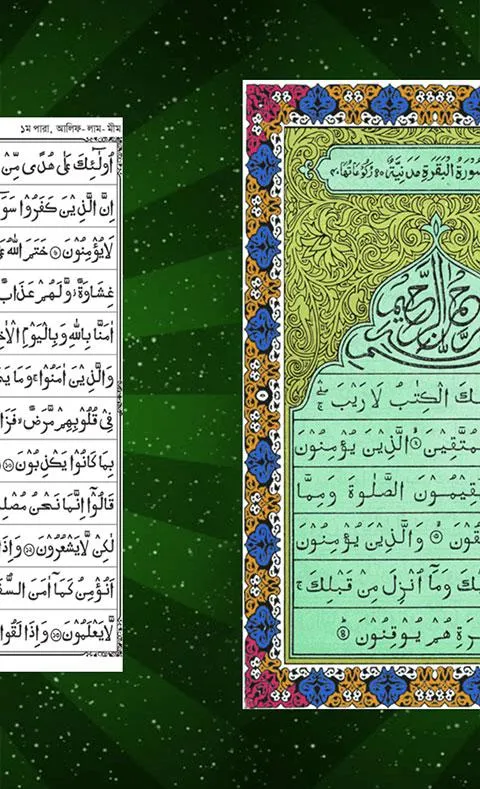 ১ম পারা, আলিফ- লাম- মীম
اُولٰٓئِكَ عَلٰى هُدًى مِّنْ
اِنَّ الَّذِيْنَ كَفَرُوْا سَوَآ
لَايُؤْمِنُوْنَ خَتَمَ اللّٰهُ
غِشَاوَةٌ وَّلَهُمْ عَذَابٌ
اٰمَنَّا بِاللّٰهِ وَبِالْيَوْمِ الْاٰخِ
وَالَّذِيْنَ اٰمَنُوْا وَمَا يَخْ
فِىْ قُلُوْبِهِمْ مَّرَضٌ فَزَا
بِمَا كَانُوْا يَكْذِبُوْنَ
قَالُوْٓا اِنَّمَا نَحْنُ مُصْلِ
لٰكِنْ لَّايَشْعُرُوْنَ وَاِذَا
اَنُؤْمِنُ كَمَآ اٰمَنَ السُّفَ
لَّايَعْلَمُوْنَ وَاِذَا لَقُوا
سُوْرَةُ الْبَقَرَةِ مَدَنِيَّةٌ
لِكَ الْكِتٰبُ لَا رَيْبَ
مُتَّقِيْنَ الَّذِيْنَ يُؤْمِنُوْنَ
يُقِيْمُوْنَ الصَّلٰوةَ وَمِمَّا
قُوْنَ وَالَّذِيْنَ يُؤْمِنُوْنَ
لَيْكَ وَمَآ اُنْزِلَ مِنْ قَبْلِكَ
رَةِ هُمْ يُوْقِنُوْنَ